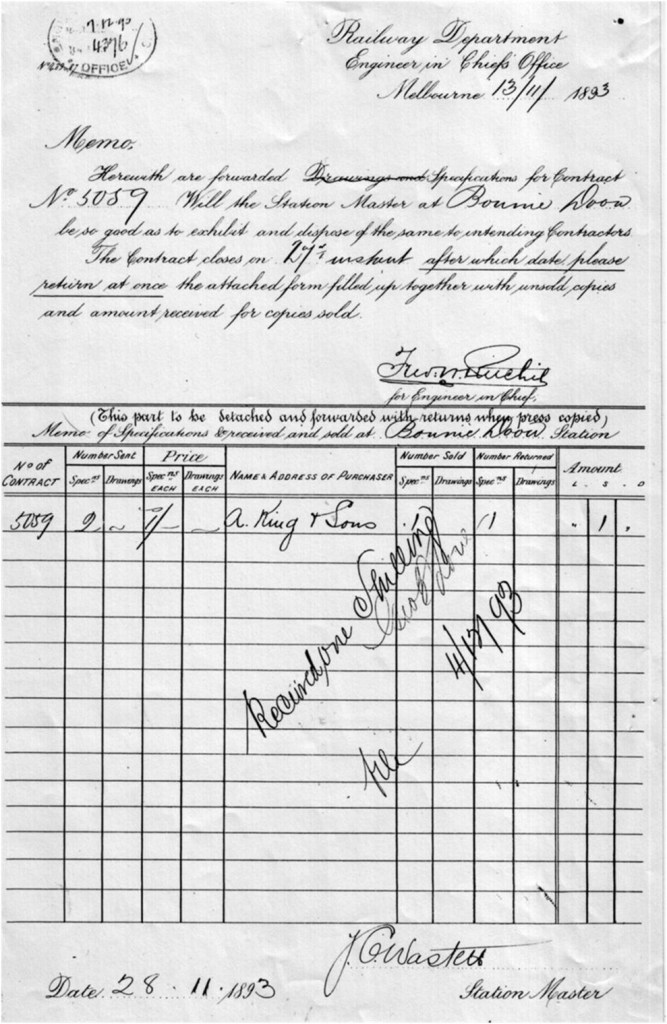 OFFICE
Railway Department
Engineer in Chief's Office
Melbourne 13/11/ 1893
Memo.
Herewith are forwarded Drawings and Specifications for Contract
No 5059 Will the Station Master at Bonnie Doon
be so good as to exhibit and dispose of the same to intending Contractors.
The Contract closes on 27th instant after which date, please
return at once the attached form filled up together with unsold copies
and amount received for copies sold.
for Engineer in Chief.
(This part to be detached and forwarded with returns when press copied)
Memo of Specifications &c received and sold at Bonnie Doon Station
No of CONTRACT Number Sent Price NAME & ADDRESS OF PURCHASER Number Sold Number Returned Amount
Specns Drawings Specns EACH Drawings EACH Specns Drawings Specns Drawings L. S. D
5059 2 ~ 1/- ~ A. King & Sons 1 " 1 "
Received one Shilling
4/12/93
file
Date 28 . 11 . 1893 Station Master